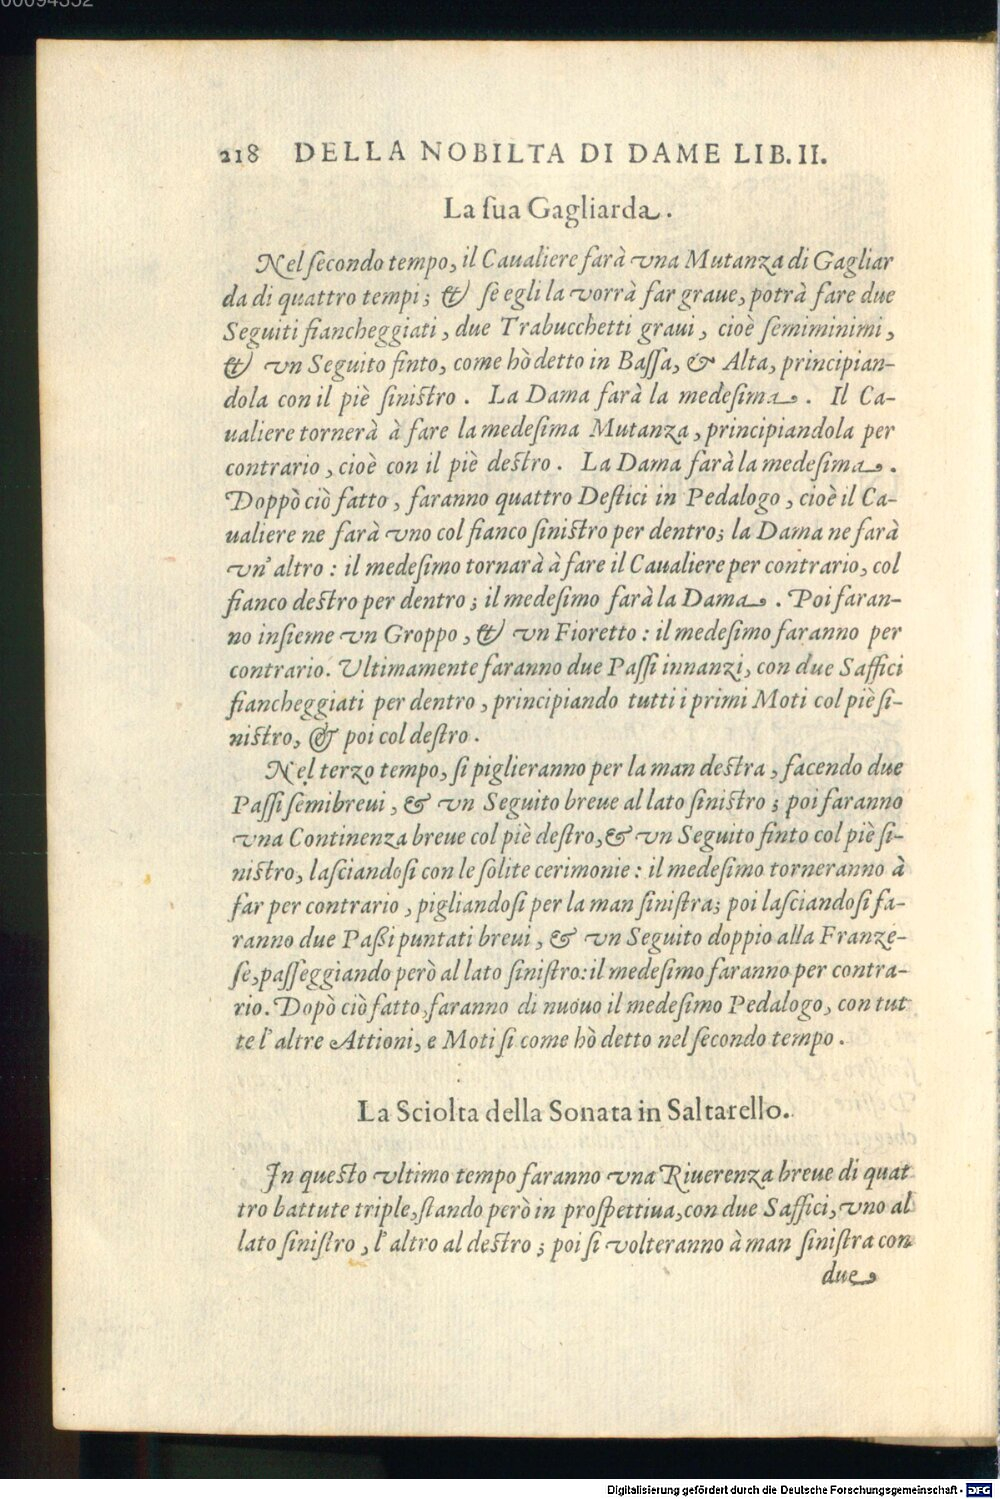 00094352
218 DELLA NOBILTA DI DAME LIB. II.
La ſua Gagliarda.
Nel ſecondo tempo, il Caualiere farà vna Mutanza di Gagliar
da di quattro tempi; & ſe egli la vorrà far graue, potrà fare due
Seguiti fiancheggiati, due Trabucchetti graui, cioè ſemiminimi,
& vn Seguito finto, come hò detto in Baſſa, & Alta, principian-
dola con il piè ſiniſtro. La Dama farà la medeſima. Il Ca-
ualiere tornerà à fare la medeſima Mutanza, principiandola per
contrario, cioè con il piè deſtro. La Dama farà la medeſima.
Doppò ciò fatto, faranno quattro Deſtici in Pedalogo, cioè il Ca-
ualiere ne farà vno col fianco ſiniſtro per dentro; la Dama ne farà
vn' altro: il medeſimo tornarà à fare il Caualiere per contrario, col
fianco deſtro per dentro; il medeſimo farà la Dama. Poi faran-
no inſieme vn Groppo, & vn Fioretto: il medeſimo faranno per
contrario. Vltimamente faranno due Paſſi innanzi, con due Saffici
fiancheggiati per dentro, principiando tutti i primi Moti col piè ſi-
niſtro, & poi col deſtro.
Nel terzo tempo, ſi piglieranno per la man deſtra, facendo due
Paſſi ſemibreui, & vn Seguito breue al lato ſiniſtro; poi faranno
vna Continenza breue col piè deſtro, & vn Seguito finto col piè ſi-
niſtro, laſciandoſi con le ſolite cerimonie: il medeſimo torneranno à
far per contrario, pigliandoſi per la man ſiniſtra; poi laſciandoſi fa-
ranno due Paßi puntati breui, & vn Seguito doppio alla Franze-
ſe, paſſeggiando però al lato ſiniſtro: il medeſimo faranno per contra-
rio. Dopò ciò fatto, faranno di nuouo il medeſimo Pedalogo, con tut
te l' altre Attioni, e Moti ſi come hò detto nel ſecondo tempo.
La Sciolta della Sonata in Saltarello.
In queſto vltimo tempo faranno vna Riuerenza breue di quat
tro battute triple, ſtando però in proſpettiua, con due Saffici, vno al
lato ſiniſtro, l' altro al deſtro; poi ſi volteranno à man ſiniſtra con
due
Digitalisierung gefördert durch die Deutsche Forschungsgemeinschaft - DFG